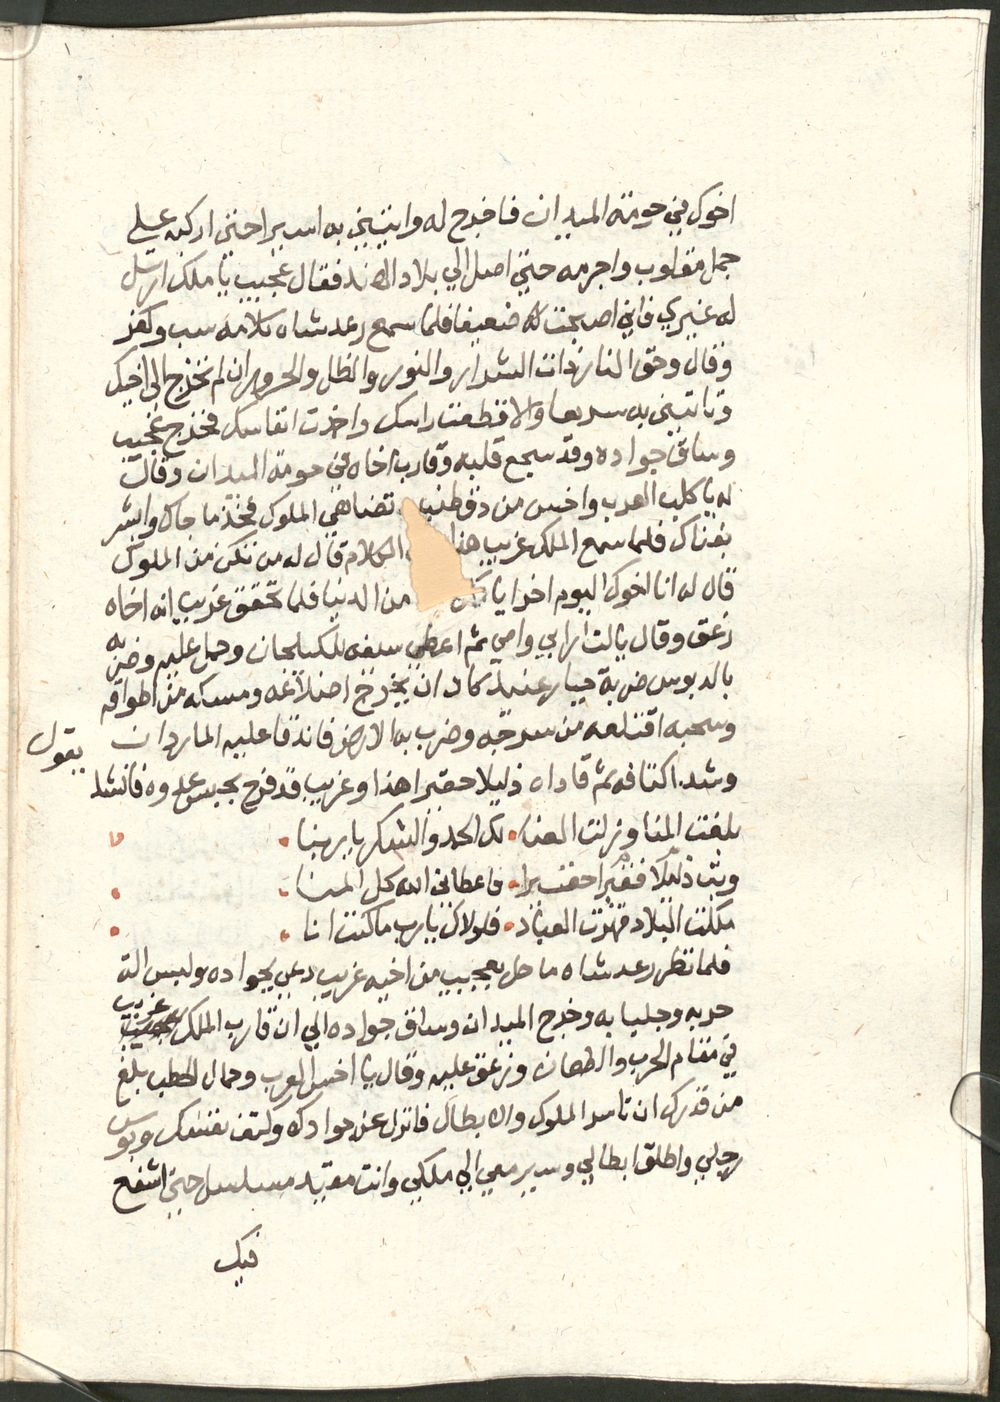 اخوك في حومة الميدان فاخرج له واتيني به اسيرا حتي اركبه علي
جمل مقلوب واجرمه حتي اصل الي بلاد الهند فقال عجيب يا ملك ارسل
له غيري فاني اصبحت ضعيفا فلما سمع رعد شاه كلامه سب وكفر
وقال وحق النار ذات الشرار والنور والظل والحرور ان لم تخرج الي اخيك
وتاتيني به سريعا والا قطعت راسك واخدت انفاسك فخرج عجيب
وساق جواده وقد سجع قلبه وقارب اخاه في حومة الميدان وقال
له يا كلب العرب واخس من دق طنب تضاهي الملوك فخذ ما جاك وابشر
بفناك فلما سمع الملك غريب هذا الكلام قال له من تكن من الملوك
قال له انا اخوك اليوم اخر ايا من الدنيا فلما تحقق غريب انه اخاه
زعق وقال يالت ارابي وامي ثم اعطي سيفه للكيلجان وحمل عليه وضربه
بالدبوس ضربة جبار عنيد كاد ان يخرج اضلاعه ومسكه من اطواقه
وسحبه اقتلعه من سرجه وضرب به الارض فاندقا عليه الماردان
وشد اكتافه ثم قاداه ذليلا حقيرا هذا وغريب قد فرح بحبس عدوه فانشد
يقول
بلغت المنا وزلت العنا • لك الحمد والشكر يا ربنا •
وبت ذليلا فقيرا حقيرا • فاعطاني الله كل المنا •
ملكت البلاد قهرت العباد • فلولاك يا رب ما كنت انا •
فلما نظر رعد شاه ما حل بعجيب من اخيه غريب دعي بجواده ولبس الة
حربه وجلبابه وخرج الميدان وساق جواده الي ان قارب الملك غريب
في مقام الحرب والطعان وزعق عليه وقال يا اخس العرب وحمال الحطب بلغ
من قدرك ان تاسر الملوك والابطال فانزل عن جوادك وكتف نفسك وبوس
رجلي واطلق ابطالي وسير معي الي ملكي وانت مقيد مسلسل حتي اشفع
فيك